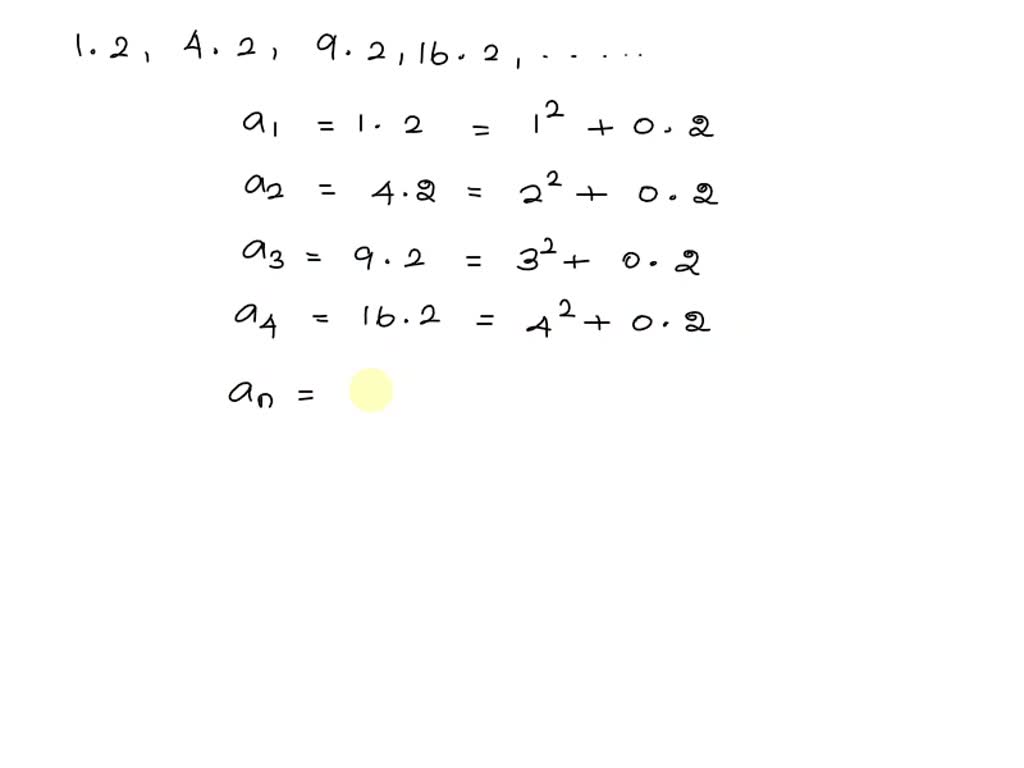 1.2, 4.2, 9.2, 16.2, ......
a₁ = 1.2 = 1² + 0.2
a₂ = 4.2 = 2² + 0.2
a₃ = 9.2 = 3² + 0.2
a₄ = 16.2 = 4² + 0.2
aₙ =